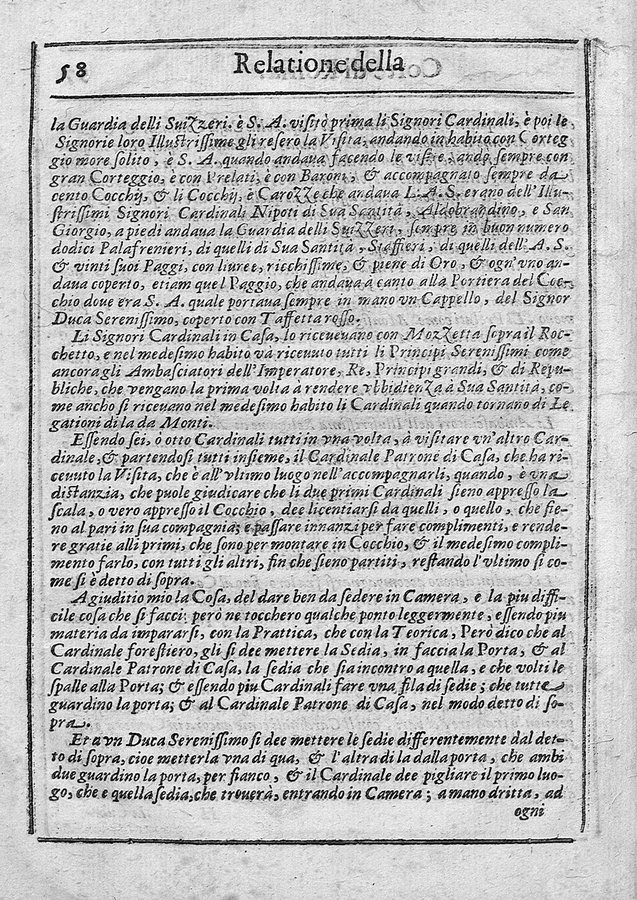 58
Relatione della
la Guardia delli Suizzeri. è S. A. visitò prima li Signori Cardinali, è poi le
Signorie loro Illustrissime gli resero la Visita, andando in habito con Corteg
gio more solito, è S. A. quando andaua facendo le visite, andò sempre con
gran Corteggio, è con Prelati, è con Baroni, & accompagnato sempre da
cento Cocchij, & li Cocchij, è Carozze che andaua L. A. S. erano dell'Illu-
strissimi Signori Cardinali Nipoti di Sua Santità, Aldobrandino, e San
Giorgio, a piedi andaua la Guardia delli Suizzeri, sempre in buon numero
dodici Palafrenieri, di quelli di Sua Santità, Staffieri, di quelli dell'A. S.
& vinti suoi Paggi, con liuree, ricchissime, & piene di Oro, & ogn'vno an-
daua coperto, etiam que'l Paggio, che andaua a canto alla Portiera del Coc-
chio doue era S. A. quale portaua sempre in mano vn Cappello, del Signor
Duca Serenissimo, coperto con Taffetta rosso.
Li Signori Cardinali in Casa, lo riceueuano con Mozzetta sopra il Roc-
chetto, e nel medesimo habito và riceuuto tutti li Principi Serenissimi come
ancora gli Ambasciatori dell'Imperatore, Re, Principi grandi, & di Repu-
bliche, che vengano la prima volta à rendere vbbidienza à Sua Santità, co-
me ancho si riceuano nel medesimo habito li Cardinali quando tornano di Le
gationi di la da Monti.
Essendo sei, ò otto Cardinali tutti in vna volta, à visitare vn'altro Car-
dinale, & partendosi tutti insieme, il Cardinale Patrone di Casa, che ha ri-
ceuuto la Visita, che è all'vltimo luogo nell'accompagnarli, quando, è vna
distanzia, che puole giudicare che li due primi Cardinali sieno appresso la
scala, o vero appresso il Cocchio, dee licentiarsi da quelli, o quello, che fie-
no al pari in sua compagnia; e passare innanzi per fare complimenti, e rende-
re gratie alli primi, che sono per montare in Cocchio, & il medesimo compli-
mento farlo, con tutti gli altri, fin che sieno partiti, restando l'vltimo si co-
me si è detto di sopra.
A giuditio mio la Cosa, del dare ben da sedere in Camera, e la piu diffi-
cile cosa che si facci: però ne tocchero qualche ponto leggermente, essendo piu
materia da impararsi, con la Prattica, che con la Teorica, Però dico che al
Cardinale forestiero, gli si dee mettere la Sedia, in faccia la Porta, & al
Cardinale Patrone di Casa, la sedia che sia incontro a quella, e che volti le
spalle alla Porta; & essendo piu Cardinali fare vna fila di sedie; che tutte
guardino la porta; & al Cardinale Patrone di Casa, nel modo detto di so-
pra.
Et a vn Duca Serenissimo si dee mettere le sedie differentemente dal det-
to di sopra, cioe metterla vna di qua, & l'altra di la dalla porta, che ambi
due guardino la porta, per fianco, & il Cardinale dee pigliare il primo luo-
go, che e quella sedia, che trouerà, entrando in Camera; a mano dritta, ad
ogni